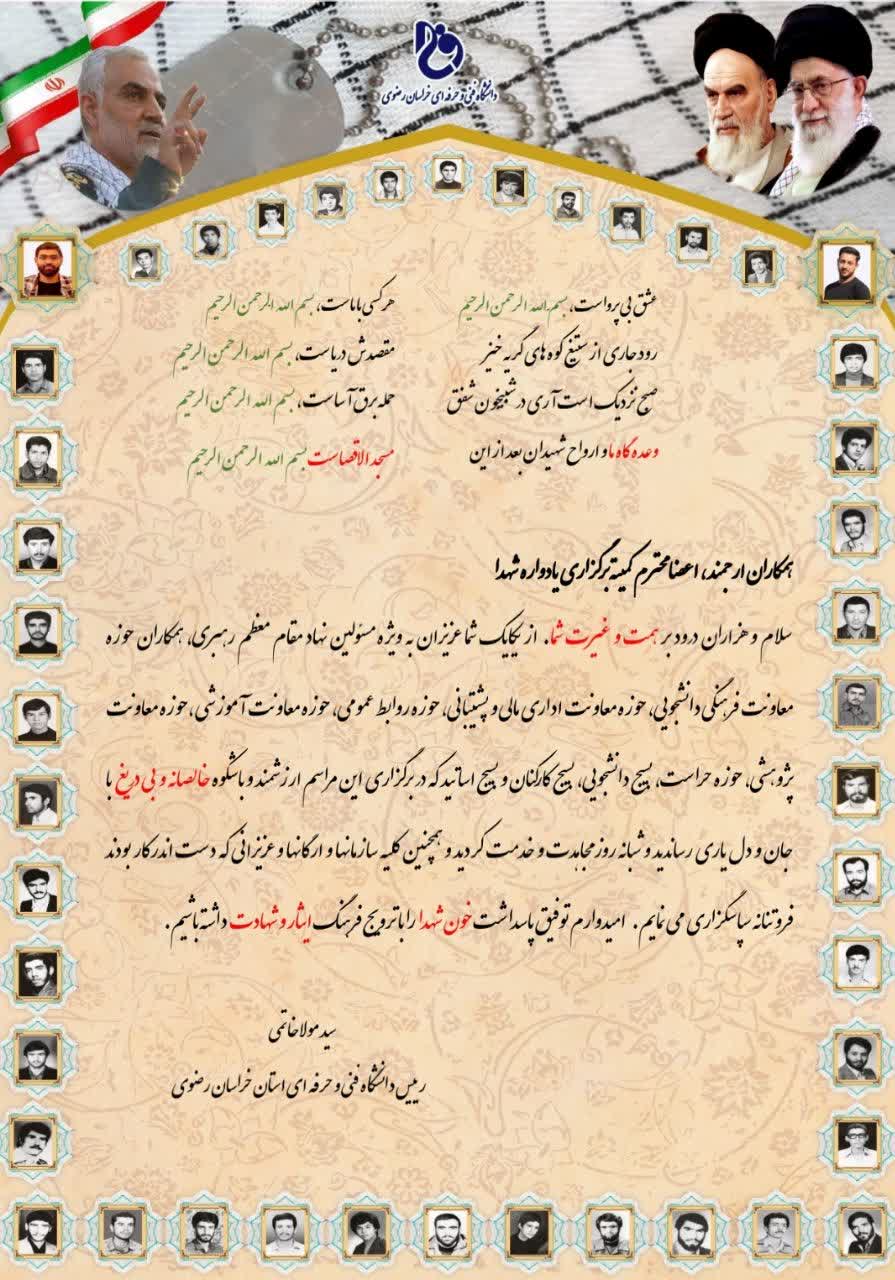 دانشگاه فنی و حرفه ای خراسان رضوی
عشق بی پرواست، بسم الله الرحمن الرحیم هر کسی با ماست، بسم الله الرحمن الرحیم
رود جاری از ستیغ کوه های گریه خیز مقصدش دریاست، بسم الله الرحمن الرحیم
صبح نزدیک است آری در شبیخون شفق حمله برق آساست، بسم الله الرحمن الرحیم
وعده گاه ما و ارواح شهیدان بعد از این مسجد الاقصاست بسم الله الرحمن الرحیم
همکاران ارجمند، اعضا محترم کمیته برگزاری یادواره شهدا
سلام و هزاران درود بر همت و غیرت شما. از یکایک شما عزیزان به ویژه مسئولین نهاد مقام معظم رهبری، همکاران حوزه
معاونت فرهنگی دانشجویی، حوزه معاونت اداری مالی و پشتیبانی، حوزه روابط عمومی، حوزه معاونت آموزشی، حوزه معاونت
پژوهشی، حوزه حراست، بسیج دانشجویی، بسیج کارکنان و بسیج اساتید که در برگزاری این مراسم ارزشمند و باشکوه خالصانه و بی دریغ با
جان و دل یاری رساندید و شبانه روز مجاهدت و خدمت کردید و همچنین کلیه سازمانها و ارگانها و عزیزانی که دست اندرکار بودند
فروتنانه سپاسگزاری می نمایم. امیدوارم توفیق پاسداشت خون شهدا را با ترویج فرهنگ ایثار و شهادت داشته باشیم.
سید مولا خاتمی
رییس دانشگاه فنی و حرفه ای استان خراسان رضوی